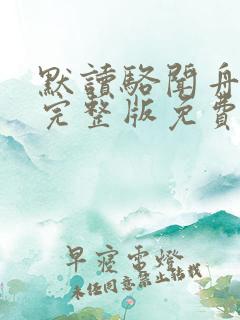 默讀駱聞舟
完整版免費
早寢電燈
未經同意禁止轉載